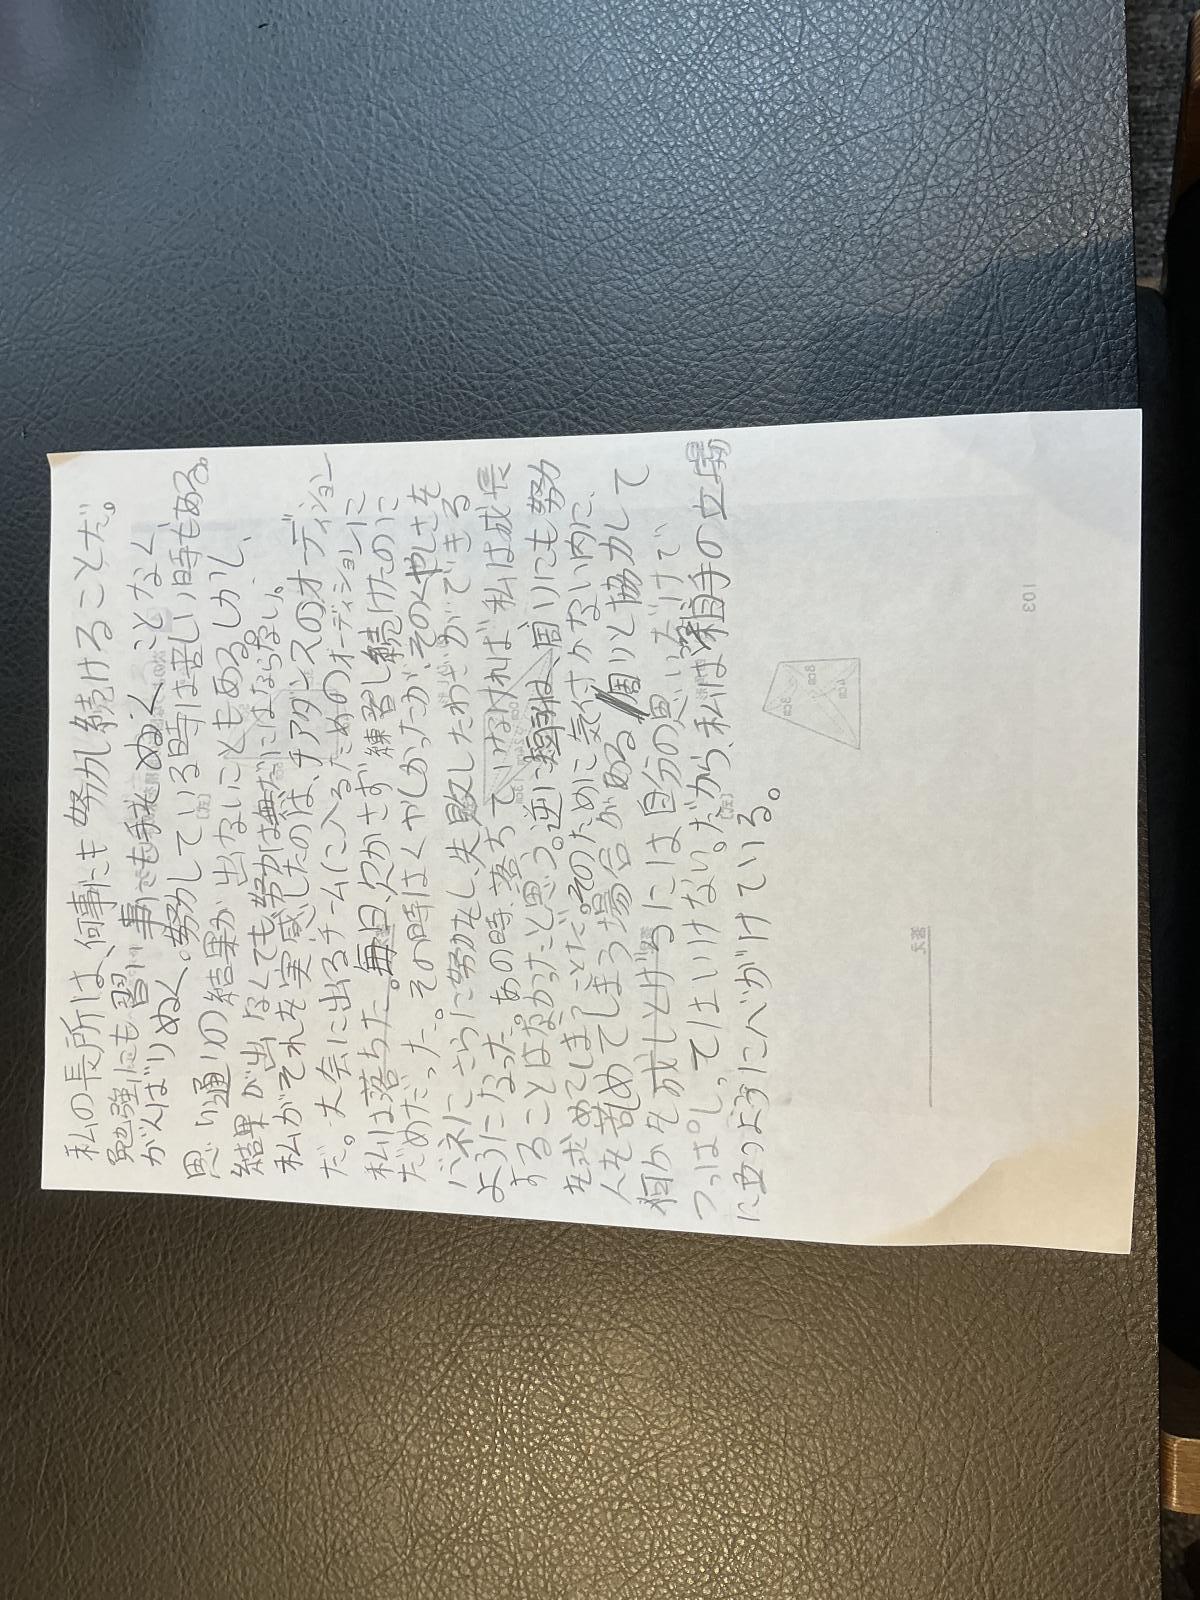 私の長所は、何事にも努力し続けることだ。
勉強にも習い事でも手をぬくことなく
がんばりぬく。努力している時は苦しい時もある。
思い通りの結果が出ないこともある。しかし、
結果が出なくても努力は無だにはならない。
私がそれを実感したのは、チアダンスのオーディション
だ。大会に出るチームに入るためのオーディションに
私は落ちた。毎日、欠かさず練習し続けたのに
だめだった。その時はくやしかったが、そのくやしさを
バネにさらに努力をし、失敗したわざができる
ようになった。あの時、落ちていなければ私は成長
することはなかったと思う。逆に短所は、周りにも努力
を求めてしまうことだ。そのために気付かない内に、
人を責めてしまう場合がある。周りと協力して
何かを成しとげるには自分の思いだけで
つっぱしってはいけない。だから、私は相手の立場
に立つように心がけている。
103